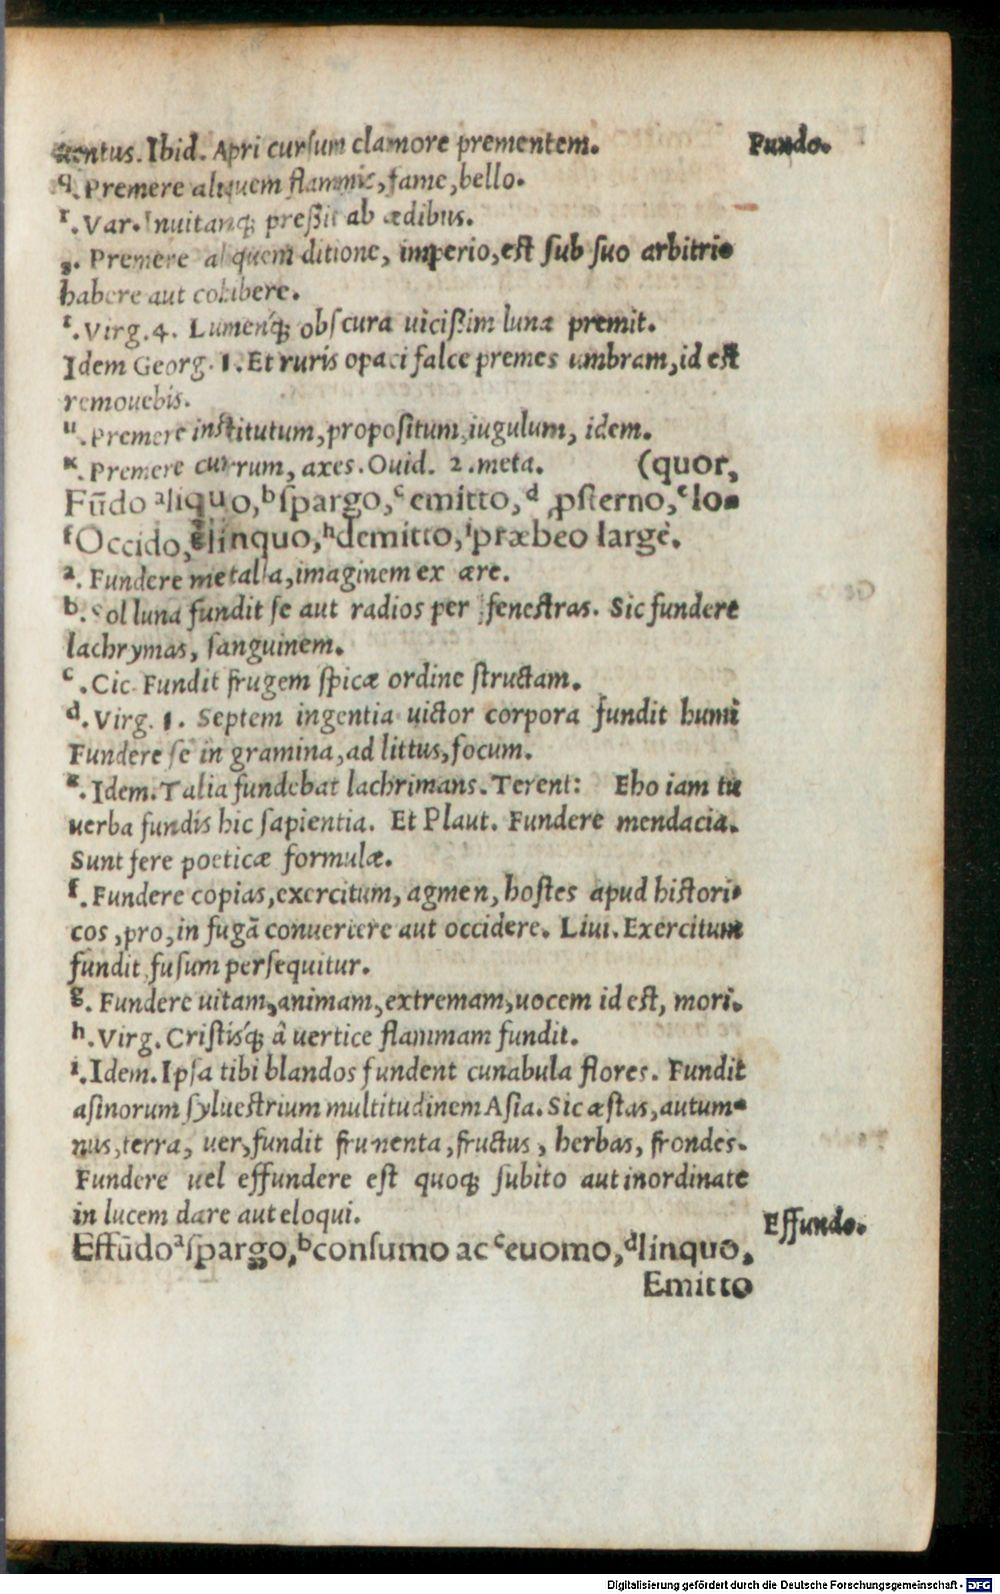 uentus. Ibid. Apri cursum clamore prementem.
Fundo.
q. Premere aliquem flammis, fame, bello.
r. Var. Inuitanq́; preßit ab ædibus.
s. Premere aliquem ditione, imperio, est sub suo arbitrio
habere aut cohibere.
t. Virg. 4. Lumenq́; obscura uicißim luna premit.
Idem Georg. 1. Et ruris opaci falce premes umbram, id est
remouebis.
u. Premere institutum, propositum, iugulum, idem.
x. Premere currum, axes. Ouid. 2. meta. (quor,
Fũdo ᵃliquo, ᵇspargo, ᶜemitto, ᵈ ꝓsterno, ᵉlo-
ᶠOccido, ᵍlinquo, ʰdemitto, ⁱpræbeo largè.
a. Fundere metalla, imaginem ex ære.
b. Sol luna fundit se aut radios per fenestras. Sic fundere
lachrymas, sanguinem.
c. Cic. Fundit frugem spicæ ordine structam.
d. Virg. 1. Septem ingentia uictor corpora fundit humi
Fundere se in gramina, ad littus, focum.
e. Idem. Talia fundebat lachrimans. Terent: Eho iam tu
uerba fundis hic sapientia. Et Plaut. Fundere mendacia.
Sunt fere poeticæ formulæ.
f. Fundere copias, exercitum, agmen, hostes apud histori-
cos, pro, in fugã conuertere aut occidere. Liui. Exercitum
fundit fusum persequitur.
g. Fundere uitam, animam, extremam, uocem id est, mori.
h. Virg. Cristisq́; â uertice flammam fundit.
i. Idem. Ipsa tibi blandos fundent cunabula flores. Fundit
asinorum syluestrium multitudinem Asia. Sic æstas, autum-
nus, terra, uer, fundit frumenta, fructus, herbas, frondes.
Fundere uel effundere est quoq; subito aut inordinate
in lucem dare aut eloqui.
Effundo.
Effũdo ᵃspargo, ᵇconsumo ac ᶜeuomo, ᵈlinquo,
Emitto
Digitalisierung gefördert durch die Deutsche Forschungsgemeinschaft - DFG